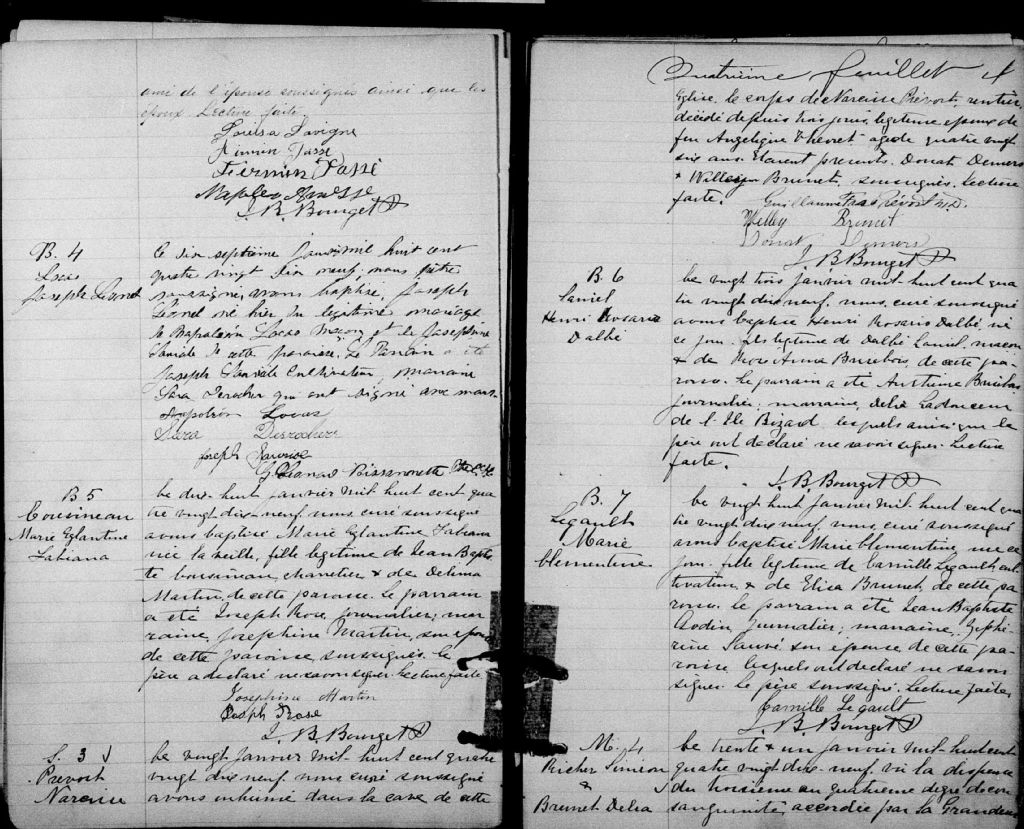 ami de l'épouse soussignés ainsi que les
époux. Lecture faite.
Louisa Lavigne
Firmin Passé
J. B. Bourget P
B. 4
Lucas
Joseph Lionel
Le dix septième Janv. mil huit cent
quatre vingt dix neuf, nous prêtre
soussigné, avons baptisé, Joseph
Lionel né hier du légitime mariage
de Napoléon Lucas maçon et de Joséphine
de cette paroisse. Le Parrain a été
Joseph Cultivateur, marraine
qui ont signé avec nous
Napoléon Lucas
Desrochers
Joseph
Bissonnette
B 5
Cousineau
Marie Eglantine
Fabiana
Le dix-huit janvier mil-huit cent qua
tre vingt-dix-neuf, nous, curé soussigné
avons baptisé Marie Eglantine Fabiana
née la veille, fille légitime de Jean Baptis
te Cousineau, charretier & de Delima
Martin, de cette paroisse. Le parrain
a été Joseph Rose, journalier; mar
raine, Josephine Martin, son épouse
de cette paroisse, soussignés. Le
père a déclaré ne savoir signer. Lecture faite.
Josephine Martin
Joseph Rose
J. B. Bourget P
S. 3
Prevost
Narcisse
Le vingt janvier mil-huit cent quatre
vingt dix neuf, nous curé soussigné
avons inhumé dans la cave de cette
Quatrième feuillet 4
Eglise, le corps de Narcisse Prévost, rentier,
décédé depuis trois jours, légitime époux de
feu Angelique agé de quatre vingt
six ans. Etaient présents, Donat Demers
& Brunet, soussignés. Lecture
faite.
Guillaume Prévost M.D.
Brunet
Donat Demers
J B Bourget P
B. 6
Daniel
Henri Rosario
Dalbé
Le vingt trois janvier mil-huit cent qua
tre vingt dix neuf, nous, curé soussigné
avons baptisé Henri Rosario Dalbé, né
ce jour, fils légitime de Dalbé Daniel, maçon
& de Rose Anna Brisebois, de cette pa-
roisse. Le parrain a été Antoine Brisebois
journalier; marraine, Delia Ladouceur
de l'Ile Bizard lesquels ainsi que le
père ont déclaré ne savoir signer. Lecture
faite.
J. B. Bourget P
B. 7
Legault
Marie
Clementine
Le vingt huit janvier mil huit cent qua
tre vingt dix neuf, nous, curé soussigné
avons baptisé Marie Clementine, née ce
jour, fille légitime de Camille Legault cul
tivateur & de Elisa Brunet, de cette pa
roisse. Le parrain a été Jean Baptiste
Godin, journalier; marraine, Zéphi-
rine Sauvé son épouse de cette pa-
roisse lesquels ont déclaré ne savoir
signer. Le père soussigné. Lecture faite.
Camille Legault
J. B. Bourget P
M. 4
Richer Siméon
&
Brunet Delia
Le trente & un janvier mil-huit cent
quatre vingt dix-neuf, vu la dispense
du troisième au quatrième degré de con
sanguinité, accordée par la Grandeur